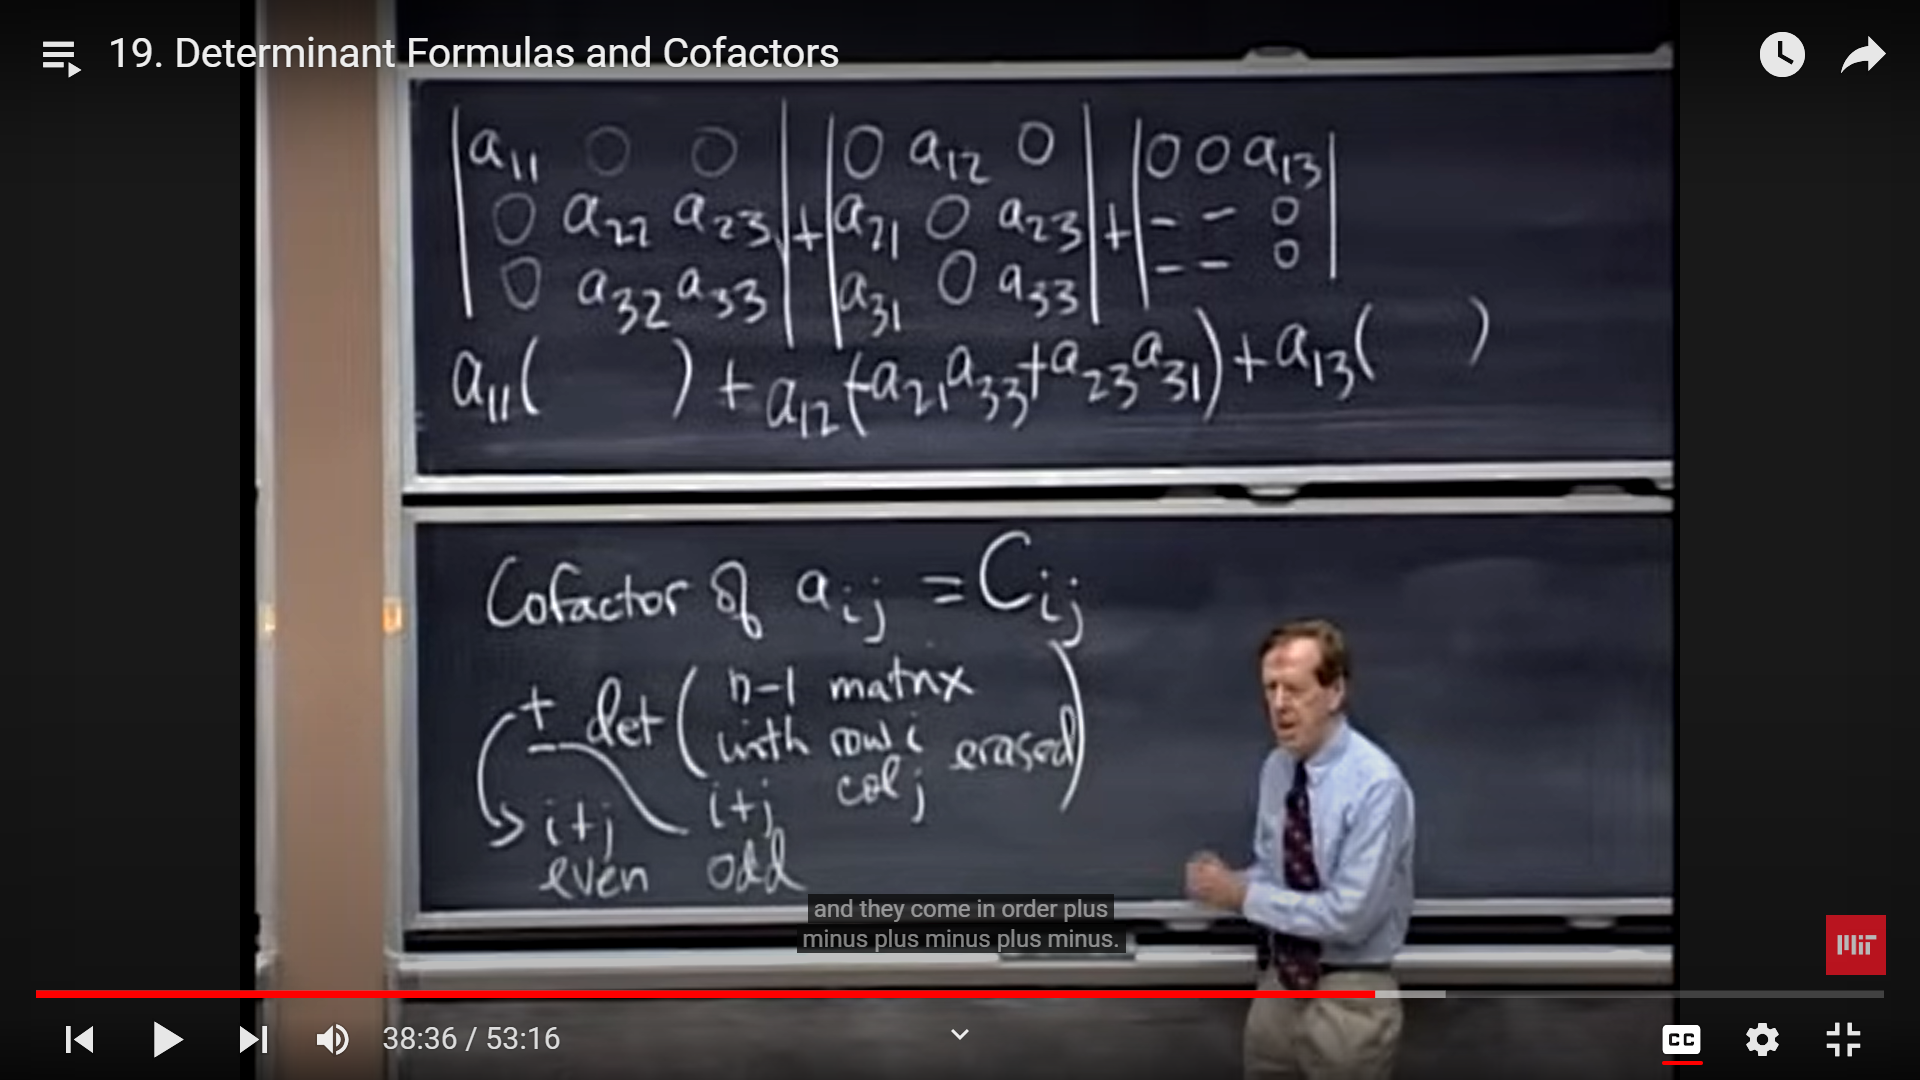 19. Determinant Formulas and Cofactors
| a11 0 0 | + | 0 a12 0 | + | 0 0 a13 |
| 0 a22 a23 | + | a21 0 a23 | + | - - 0 |
| 0 a32 a33 | | a31 0 a33 | | - - 0 |
a11( ) + a12(-a21a33+a23a31) + a13( )
Cofactor of aij = Cij
± det( n-1 matrix
with row i erased)
col j
i+j i+j
even odd
and they come in order plus
minus plus minus plus minus.
MIT
38:36 / 53:16
CC